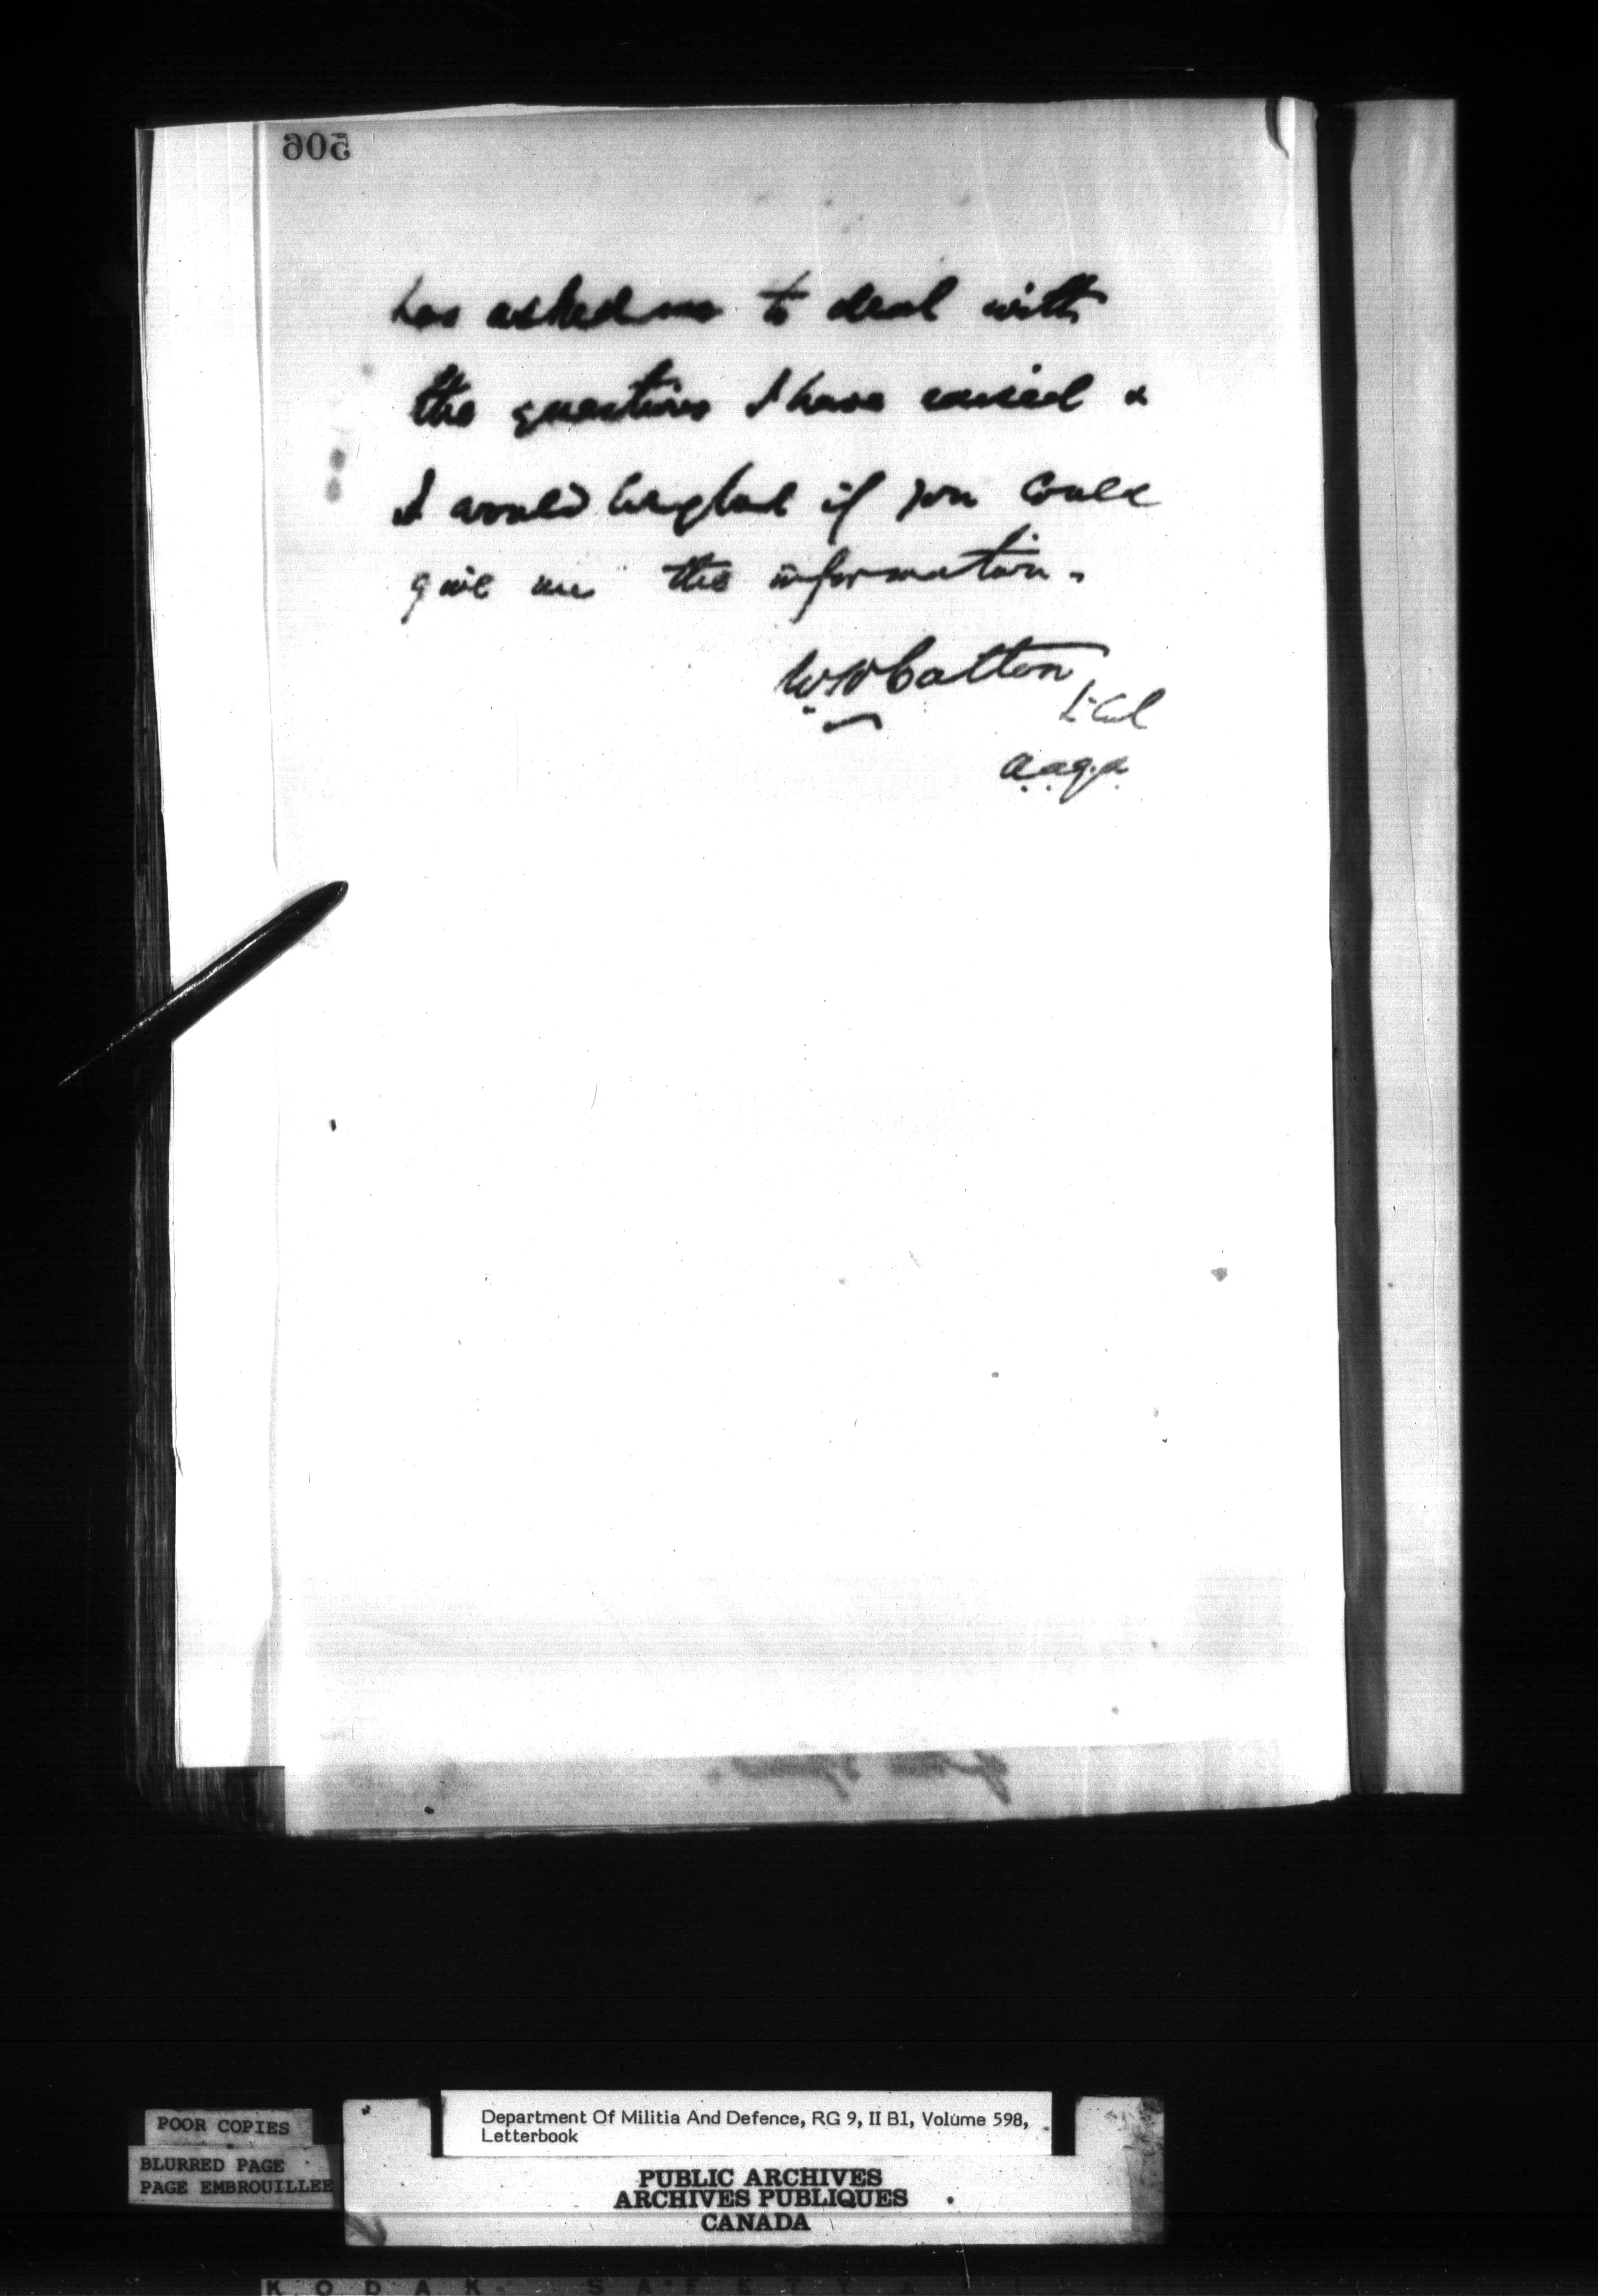 506
has asked me to deal with
the questions I have raised &
I would be glad if you could
give me the information.
W H Cotton
Lt Col
a.a.g.a.
POOR COPIES
BLURRED PAGE
PAGE EMBROUILLEE
Department Of Militia And Defence, RG 9, II B1, Volume 598,
Letterbook
PUBLIC ARCHIVES
ARCHIVES PUBLIQUES
CANADA
KODAK SAFETY